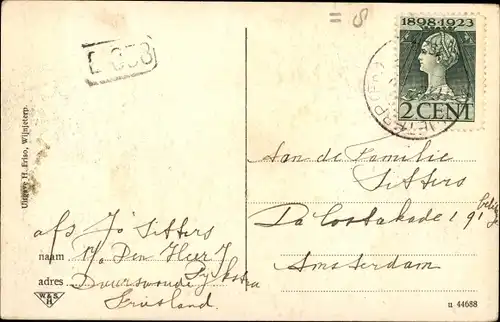 1898-1923
2 CENT
Uitgave H. Friso, Wijnjeterp.
Aan de Familie
Sitters
Da Costakade 191
Amsterdam
afs Jo Sitters
naam p/a Den Heer J
Sijkstra
adres Duurswoude
Friesland
W.&S.
H
u 44688